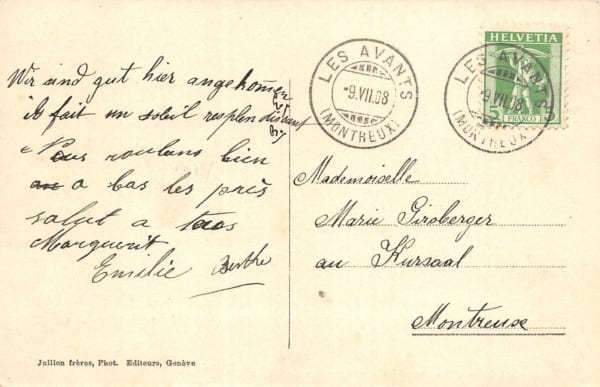 Wir sind gut hier angekommen
ils fait un soleil resplendidsant
Nous roulons bien
a bas les près
salut a tous
Marguerit
Emilie Berthe
LES AVANTS
-9.VII.08
(MONTREUX)
HELVETIA
5 FRANCO 5
LES AVANTS
-9.VII.08
(MONTREUX)
Mademoiselle
Marie Giroberger
au Kursaal
Montreux
Jullien frères, Phot. Editeurs, Genève